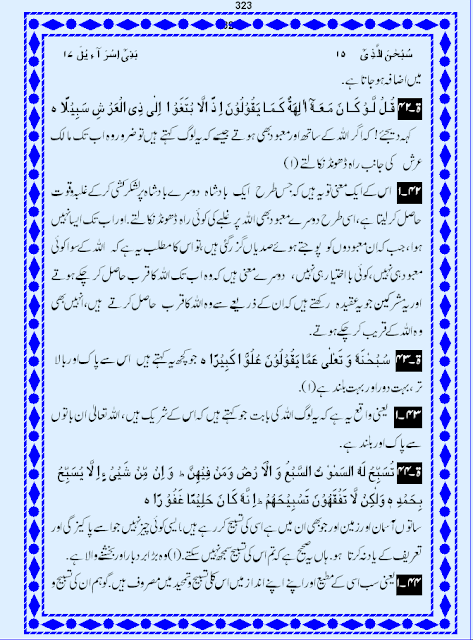 323
سُبْحٰنَ الَّذِیْ ۱۵
بَنِیْ اِسْرَآءِیْلَ ۱۷
میں اضافہ ہو جاتا ہے۔
ۃ۔۴۲ قُلْ لَّوْ كَانَ مَعَهٗۤ اٰلِهَةٌ كَمَا یَقُوْلُوْنَ اِذًا لَّابْتَغَوْا اِلٰى ذِی الْعَرْشِ سَبِیْلًا ہ
کہہ دیجئے! کہ اگر اللہ کے ساتھ اور معبود بھی ہوتے جیسے کہ یہ لوگ کہتے ہیں تو ضرور وہ اب تک مالک
عرش کی جانب راہ ڈھونڈ نکالتے (۱)
۴۲۔۱ اس کے ایک معنی تو یہ ہیں کہ جس طرح ایک بادشاہ دوسرے بادشاہ پر لشکر کشی کر کے غلبہ و قوت
حاصل کر لیتا ہے، اسی طرح دوسرے معبود بھی اللہ پر غلبے کی کوئی راہ ڈھونڈ نکالتے۔ اور اب تک ایسا نہیں
ہوا، جب کہ ان معبودوں کو پوجتے ہوئے صدیاں گزر گئی ہیں، تو اس کا مطلب یہ ہے کہ اللہ کے سوا کوئی
معبود ہی نہیں، کوئی با اختیار ہی نہیں، دوسرے معنی ہیں کہ وہ اب تک اللہ کا قرب حاصل کر چکے ہوتے
اور یہ مشرکین جو یہ عقیدہ رکھتے ہیں کہ ان کے ذریعے سے وہ اللہ کا قرب حاصل کرتے ہیں، انہیں بھی
وہ اللہ کے قریب کر چکے ہوتے۔
ۃ۔۴۳ سُبْحٰنَهٗ وَ تَعٰلٰى عَمَّا یَقُوْلُوْنَ عُلُوًّا كَبِیْرًا ہ جو کچھ یہ کہتے ہیں اس سے پاک اور بالا
تر، بہت دور اور بہت بلند ہے (۱)۔
۴۳۔۱ یعنی واقع یہ ہے کہ یہ لوگ اللہ کی بابت جو کہتے ہیں کہ اس کے شریک ہیں، اللہ تعالیٰ ان باتوں
سے پاک اور بلند ہے۔
ۃ۔۴۴ تُسَبِّحُ لَهُ السَّمٰوٰتُ السَّبْعُ وَ الْاَرْضُ وَمَنْ فِیْهِنَّ ط وَ اِنْ مِّنْ شَیْئٍ اِلَّا یُسَبِّحُ
بِحَمْدِهٖ وَلٰكِنْ لَّا تَفْقَهُوْنَ تَسْبِیْحَهُمْ ط اِنَّهٗ كَانَ حَلِیْمًا غَفُوْرًا ہ
ساتوں آسمان اور زمین اور جو بھی ان میں ہے اسی کی تسبیح کر رہے ہیں، ایسی کوئی چیز نہیں جو اسے پاکیزگی اور
تعریف کے یاد نہ کرتا ہو۔ ہاں یہ صحیح ہے کہ تم اس کی تسبیح سمجھ نہیں سکتے۔ (۱) وہ بڑا بردبار اور بخشنے والا ہے۔
۴۴۔۱ یعنی سب اسی کے مطیع اور اپنے اپنے انداز میں اس کی تسبیح و تحمید میں مصروف ہیں۔ گو ہم ان کی تسبیح و